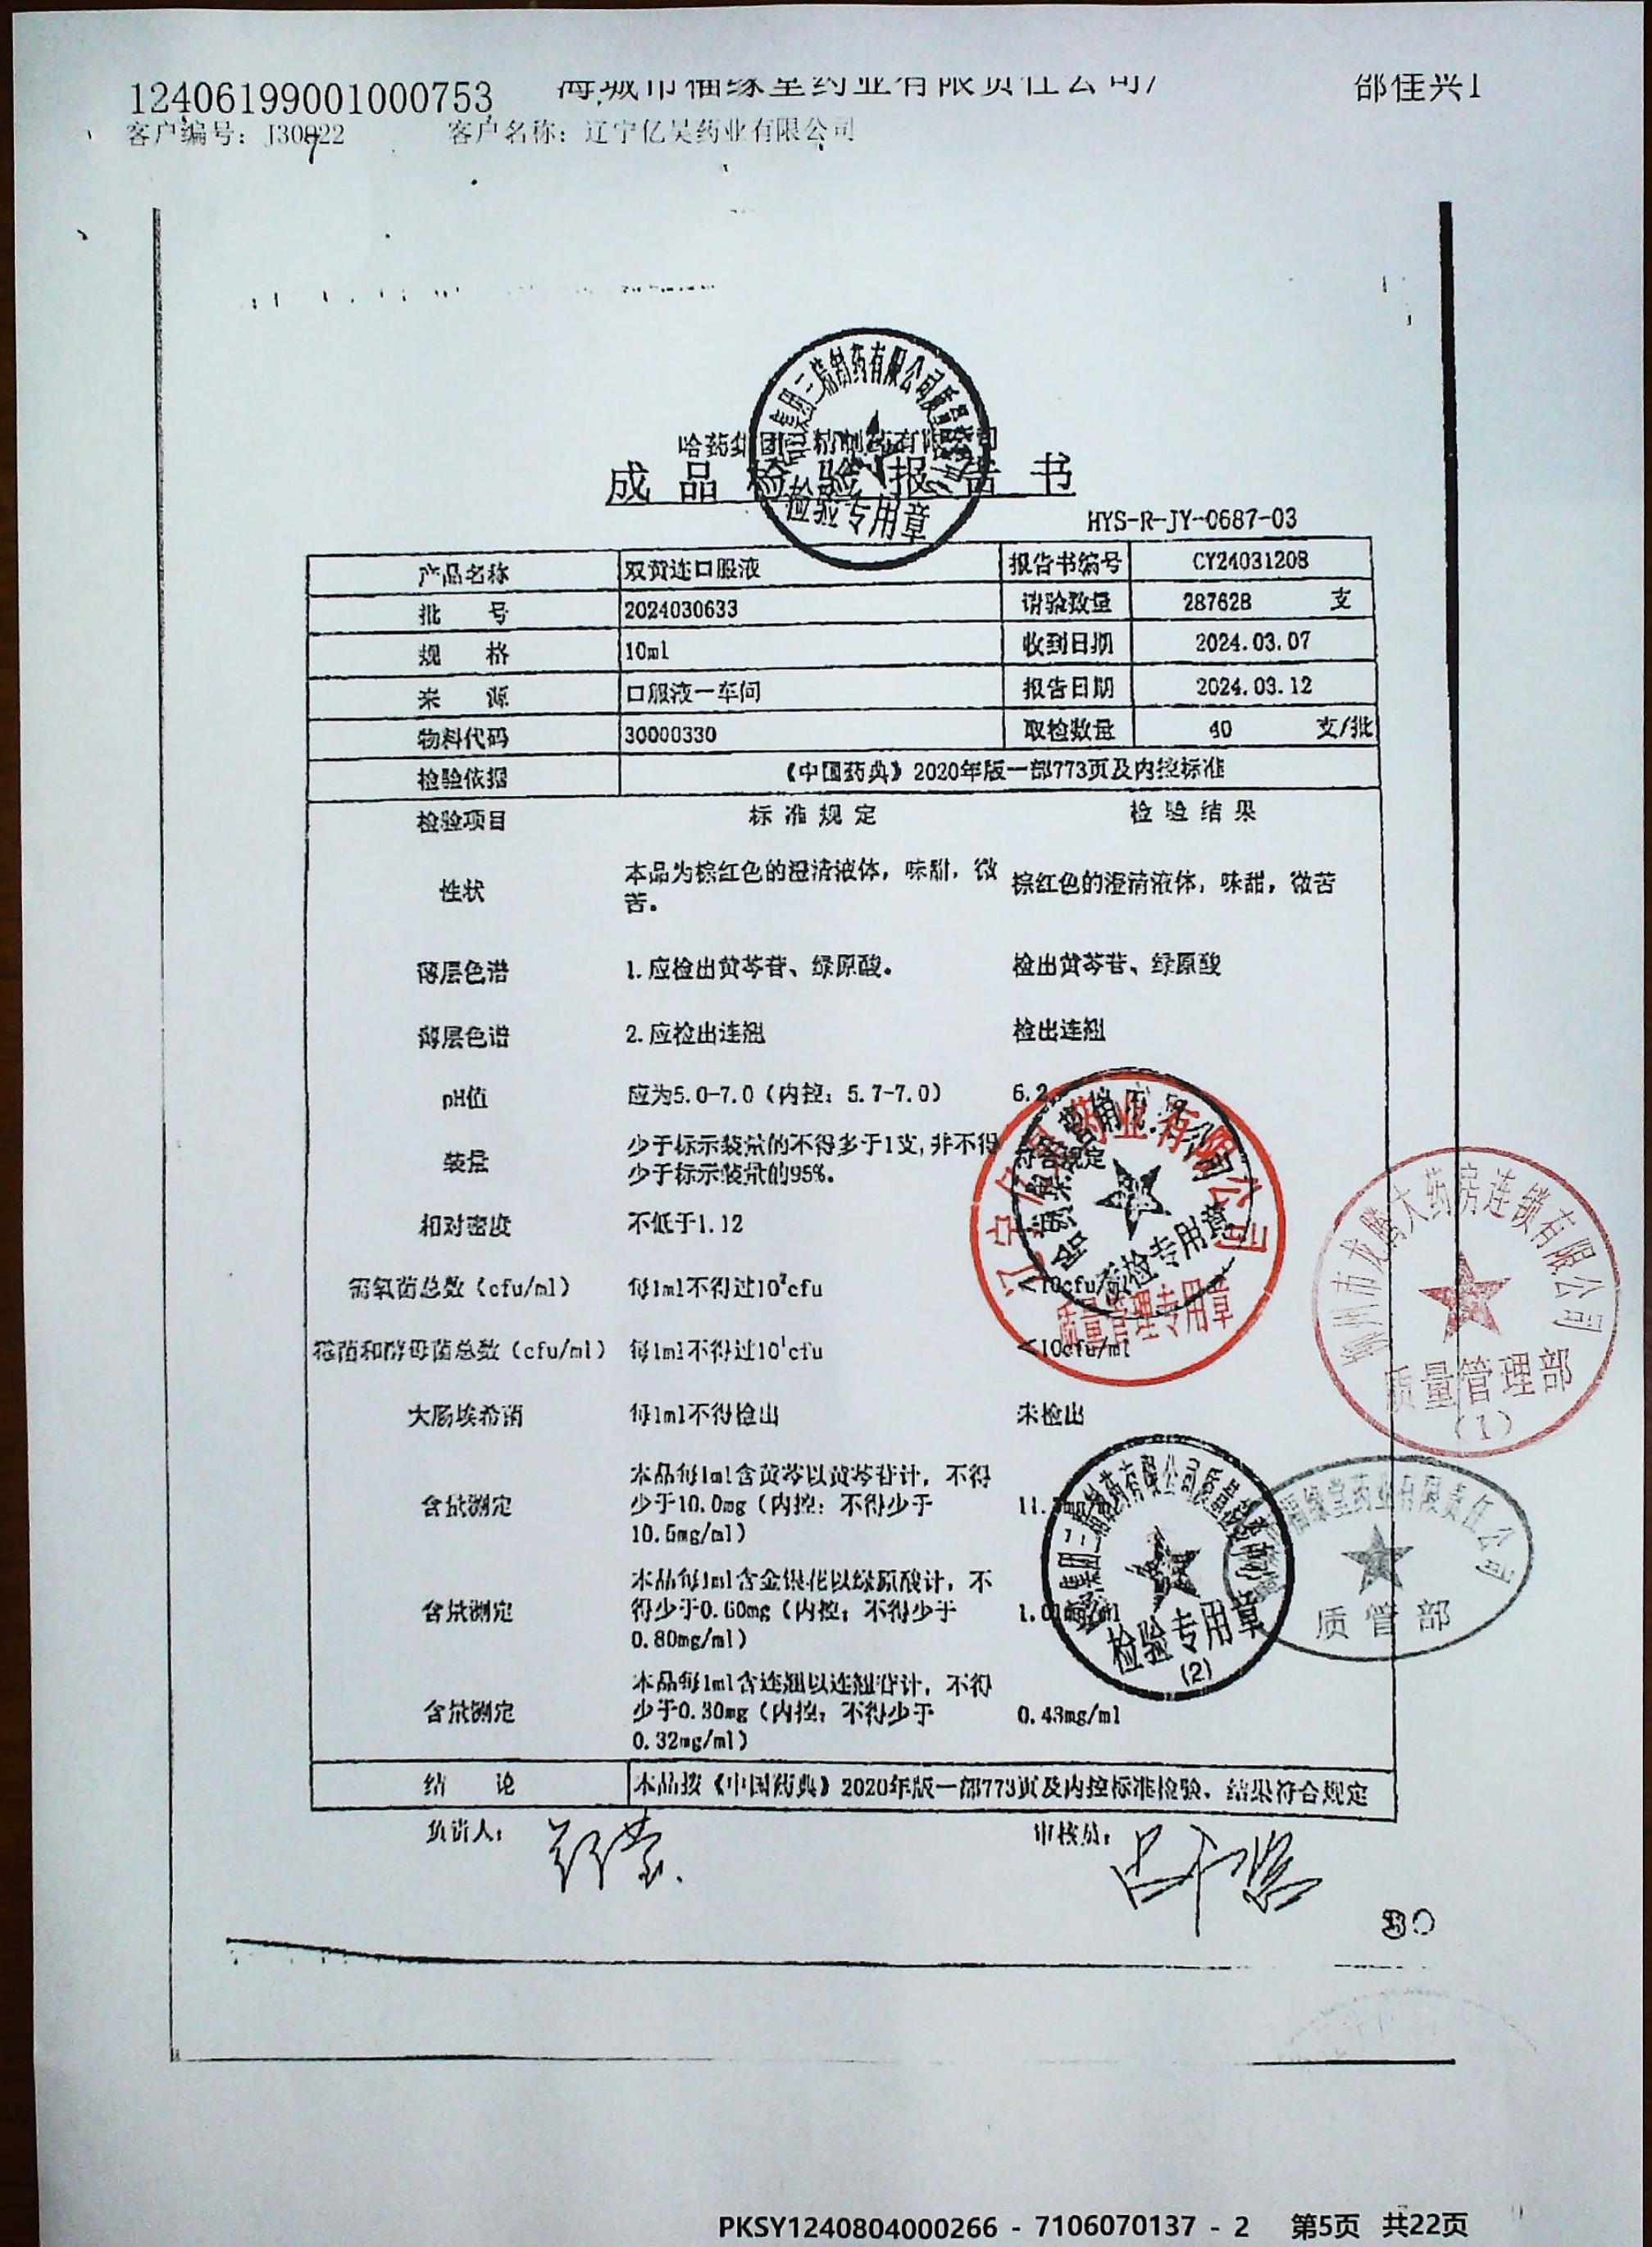 12406199001000753 海城市福缘堂药业有限责任公司/ 邵佳兴1
客户编号: J30822 客户名称: 辽宁亿昊药业有限公司
哈药集团三精制药有限公司
成品检验报告书
检验专用章
HYS-R-JY-0687-03
产品名称 双黄连口服液 报告书编号 CY24031208
批 号 2024030633 请验数量 287628 支
规 格 10ml 收到日期 2024.03.07
来 源 口服液一车间 报告日期 2024.03.12
物料代码 30000330 取检数量 40 支/批
检验依据 《中国药典》2020年版一部773页及内控标准
检验项目 标准规定 检验结果
性状 本品为棕红色的澄清液体，味甜，微 棕红色的澄清液体，味甜，微苦
苦。
薄层色谱 1.应检出黄芩苷、绿原酸。 检出黄芩苷、绿原酸
薄层色谱 2.应检出连翘 检出连翘
pH值 应为5.0-7.0（内控：5.7-7.0） 6.2
装量 少于标示装量的不得多于1支,并不得 符合规定
少于标示装量的95%。
相对密度 不低于1.12
需氧菌总数（cfu/ml） 每1ml不得过10²cfu <10cfu/ml
霉菌和酵母菌总数（cfu/ml） 每1ml不得过10¹cfu <10cfu/ml
大肠埃希菌 每1ml不得检出 未检出
本品每1ml含黄芩以黄芩苷计，不得
含量测定 少于10.0mg（内控：不得少于
10.5mg/ml）
本品每1ml含金银花以绿原酸计，不
含量测定 得少于0.60mg（内控：不得少于
0.80mg/ml）
本品每1ml含连翘以连翘苷计，不得
含量测定 少于0.30mg（内控：不得少于 0.43mg/ml
0.32mg/ml）
结 论 本品按《中国药典》2020年版一部773页及内控标准检验，结果符合规定
负责人： 审核员：
辽宁亿昊药业有限公司
质量管理专用章
质检专用章
市龙腾大药房连锁有限公司
质量管理部
(1)
检验专用章
(2)
福缘堂药业有限责任公司
质管部
30
PKSY1240804000266 - 7106070137 - 2 第5页 共22页